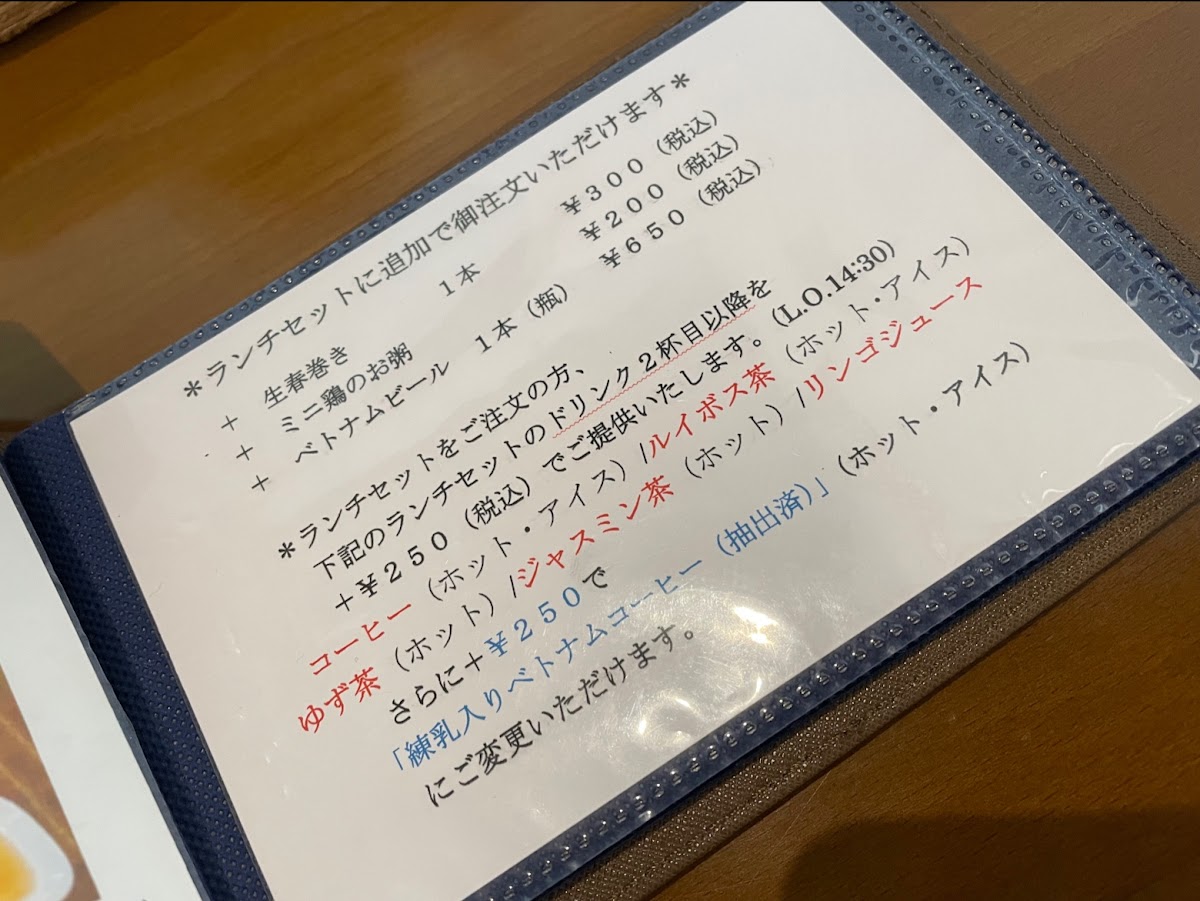 ＊ランチセットに追加で御注文いただけます＊
＋ 生春巻き 1本 ￥３００（税込）
＋ ミニ鶏のお粥 ￥２００（税込）
＋ ベトナムビール 1本（瓶） ￥６５０（税込）
＊ランチセットをご注文の方、
下記のランチセットのドリンク２杯目以降を
＋￥２５０（税込）でご提供いたします。(L.O.14:30)
コーヒー（ホット・アイス）/ルイボス茶（ホット・アイス）
ゆず茶（ホット）/ジャスミン茶（ホット）/リンゴジュース
さらに＋￥２５０で
「練乳入りベトナムコーヒー（抽出済）」（ホット・アイス）
にご変更いただけます。